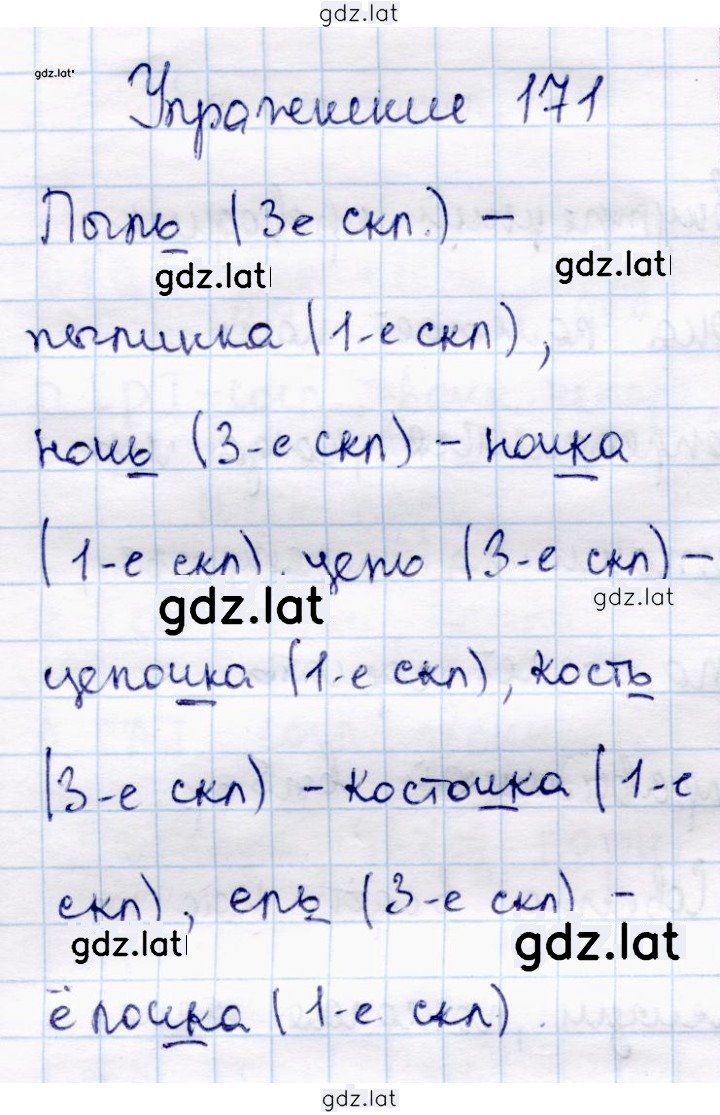 gdz.lat
gdz.lat
Упражнение 171
Пыль (3е скл.) –
gdz.lat
gdz.lat
пылинка (1-е скл),
ночь (3-е скл) – ночка
(1-е скл). цепь (3-е скл) –
gdz.lat
gdz.lat
цепочка (1-е скл), кость
(3-е скл) – косточка (1-е
скл), ель (3-е скл) –
gdz.lat
gdz.lat
ёлочка (1-е скл).
gdz.lat